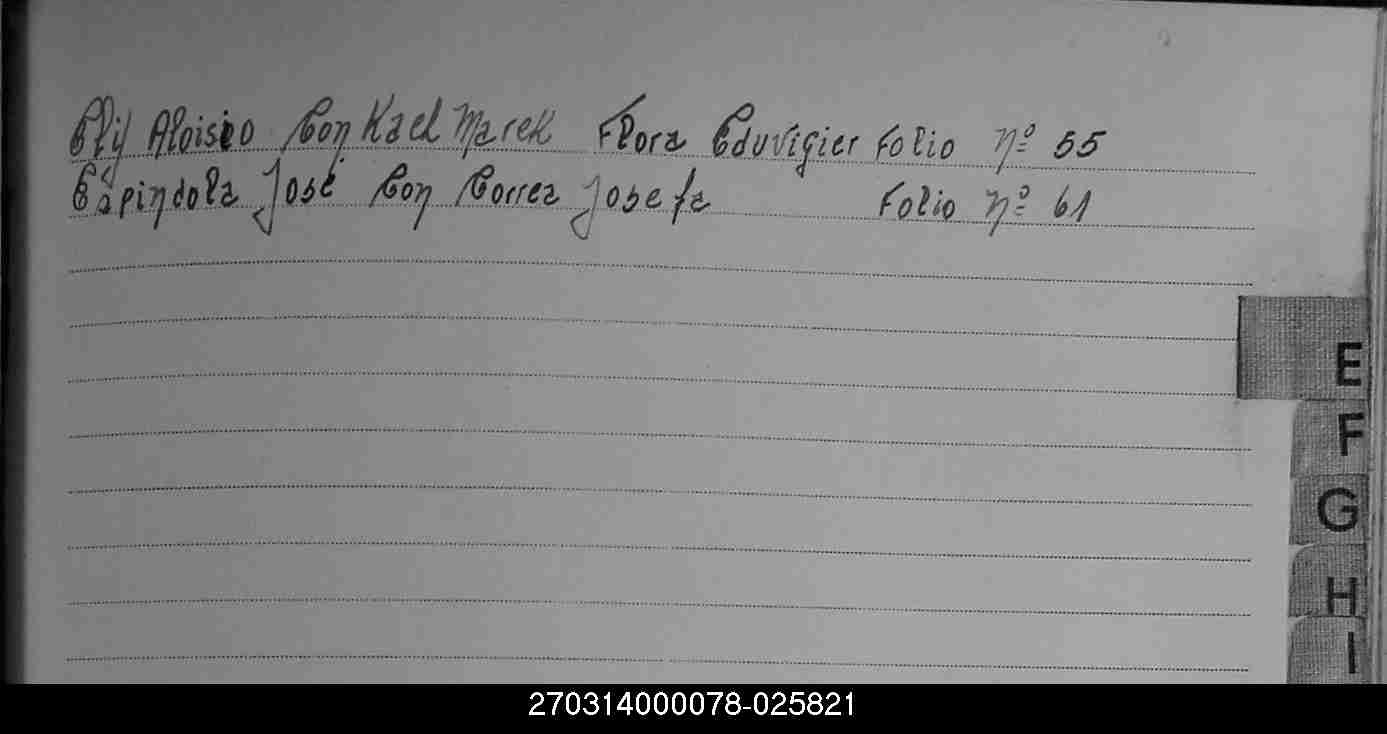 Elij Aloisio Con Kael Marek Flora Eduvigier Folio Nº 55
Espindola José Con Correa Josefa Folio Nº 61
E
F
G
H
I
270314000078-025821